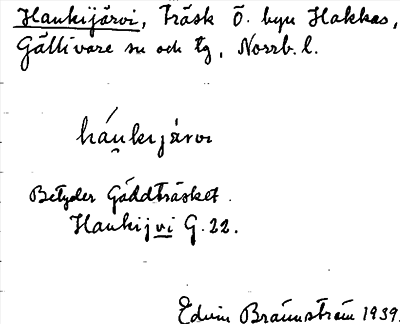 Haukijärvi, Träsk Ö. byn Hakkas,
Gällivare sn och tg, Norrb. l.
háu̯kijärvi
Betyder Gäddträsket.
Haukijvi G. 22.
Edvin Brännström 1939.